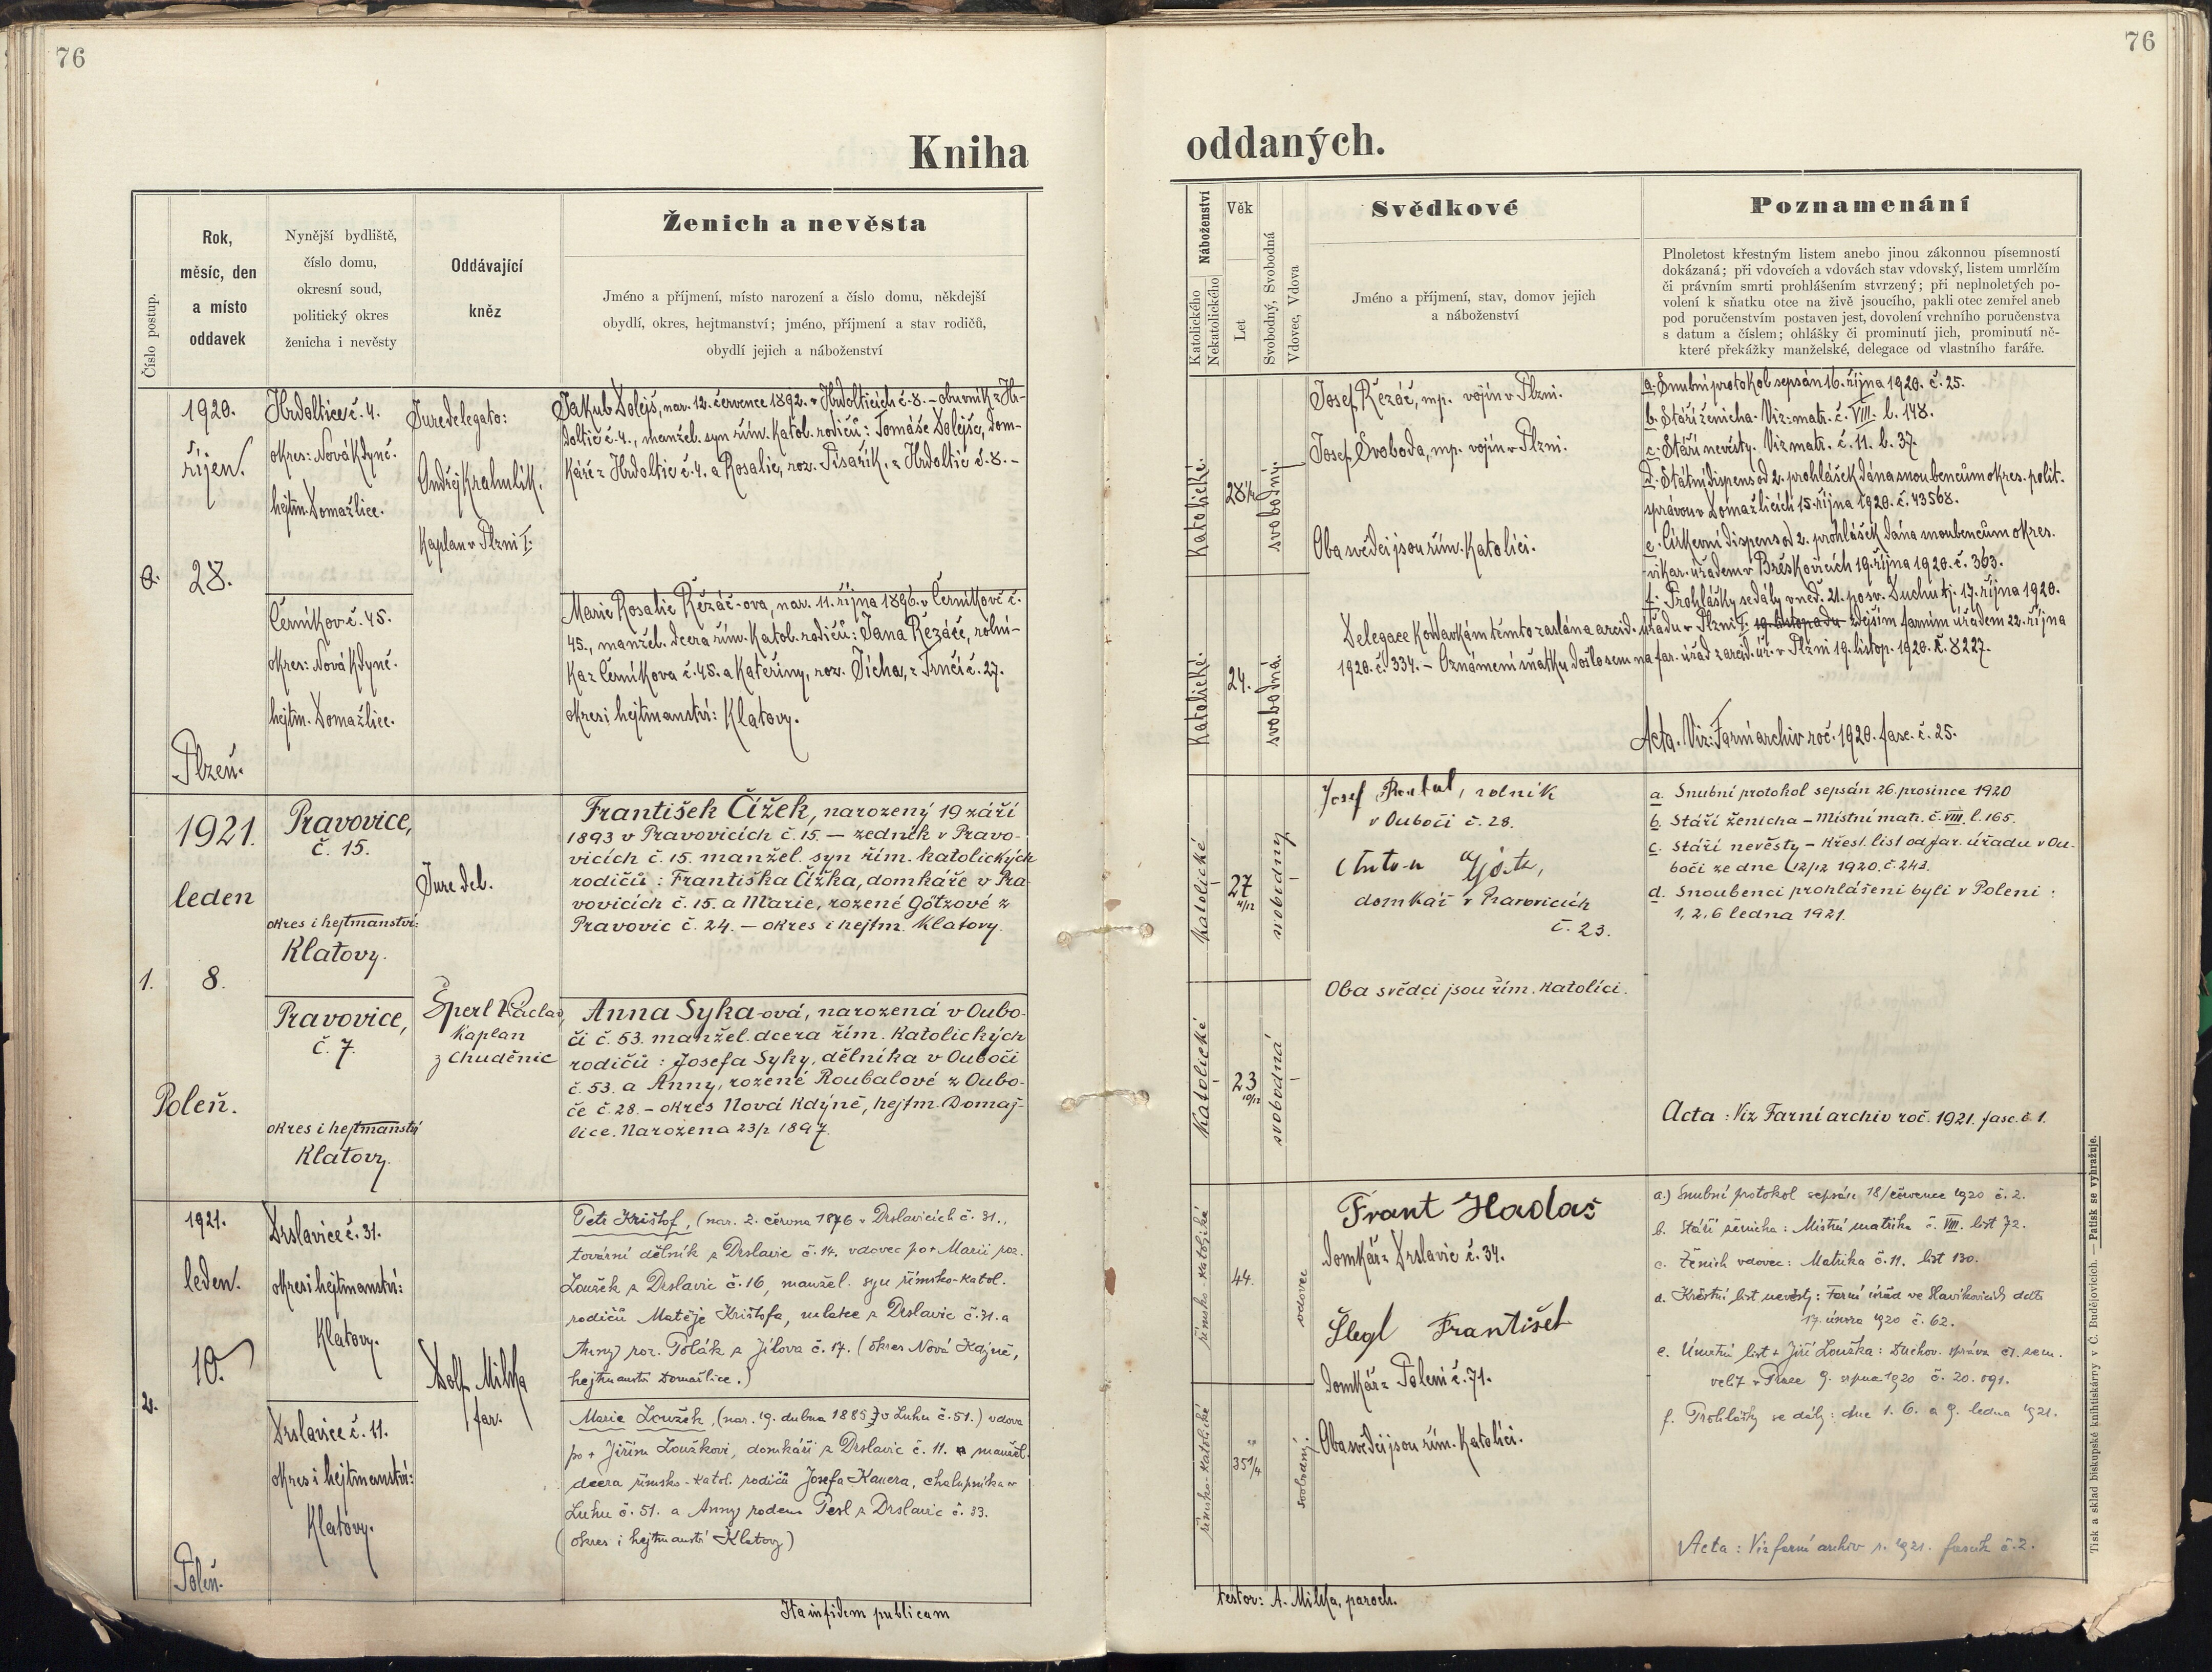 76
76
Kniha
oddaných.
Číslo postup.
Rok,
měsíc, den
a místo
oddavek
Nynější bydliště,
číslo domu,
okresní soud,
politický okres
ženicha i nevěsty
Oddávající
kněz
Ženich a nevěsta
Jméno a příjmení, místo narození a číslo domu, někdejší
obydlí, okres, hejtmanství; jméno, příjmení a stav rodičů,
obydlí jejich a náboženství
Náboženství
Katolického
Nekatolického
Věk
Let
Svobodný, Svobodná
Vdovec, Vdova
Svědkové
Jméno a příjmení, stav, domov jejich
a náboženství
Poznamenání
Plnoletost křestným listem anebo jinou zákonnou písemností
dokázaná; při vdovcích a vdovách stav vdovský, listem umrlčím
či právním smrti prohlášením stvrzený; při neplnoletých po-
volení k sňatku otce na živě jsoucího, pakli otec zemřel aneb
pod poručenstvím postaven jest, dovolení vrchního poručenstva
s datum a číslem; ohlášky či prominutí jich, prominutí ně-
které překážky manželské, delegace od vlastního faráře.
1920.
říjen.
28.
Plzeň.
Hrdoltice č. 4.
okres: Nová Kdyně.
hejtm. Domažlice.
Černíkov č. 45.
okres: Nová Kdyně.
hejtm. Domažlice.
Jure delegato:
Ondřej Krahulík.
Kaplan v Plzni I.
Jakub Dolejš, nar. 12. července 1892. v Hrdolticích č. 8. – obuvník z Hr-
doltic č. 4., manžel. syn řím. katol. rodičů: Tomáše Dolejše, dom-
káře z Hrdoltic č. 4. a Rosalie, roz. Pisařík. z Hrdoltic č. 8. –
Marie Rosalie Řezáč-ova, nar. 11. října 1896. v Černíkově č.
45., manžel. dcera řím. katol. rodičů: Jana Řezáče, rolní-
ka z Černíkova č. 45. a Kateřiny, roz. Tichá, z Trnčí č. 27.
okres i hejtmanství: Klatovy.
Katolické.
28 1/4
svobodný.
Katolické.
24.
svobodná.
Josef Řezáč, mp. vojín v Plzni.
Josef Svoboda, mp. vojín v Plzni.
Oba svědci jsou řím. Katolíci.
a. Snubní protokol sepsán 16. října 1920. č. 25.
b. Stáří ženicha. Viz: matr. č. VIII. l. 148.
c. Stáří nevěsty. Viz matr. č. 11. l. 37.
d. Státní dispens od 2. prohlášek dána snoubencům okres. polit.
správou v Domažlicích 15. října 1920. č. 43568.
e. Církevní dispens od 2. prohlášek dána snoubencům okres.
vikar. úřadem v Běškovicích 19. října 1920. č. 363.
f. Prohlášky se dály v neď. 21. po sv. Duchu tj. 17. října 1920.
Delegace k oddavkám těmto zaslána arcid. úřadu v Plzni I. 19. listopadu zdejším farním úřadem 22. října
1920. č. 334. – Oznámení sňatku došlo sem na far. úřad z arcid. úř. v Plzni 19. listop. 1920. č. 8227.
Acta. Viz: Farní archiv roč. 1920. fasc. č. 25.
1.
1921.
leden
8.
Poleň.
Pravovice,
č. 15.
okres i hejtmanství:
Klatovy.
Pravovice,
č. 7.
okres i hejtmanství
Klatovy.
Jure del.
Šperl Václav,
kaplan
z Chuděnic
František Čížek, narozený 19 září
1893 v Pravovicích č. 15. – zedník v Pravo-
vicích č. 15. manžel. syn řím. katolických
rodičů: Františka Čížka, domkáře v Pra-
vovicích č. 15. a Marie, rozené Götzové z
Pravovic č. 24. – okres i hejtm. Klatovy.
Anna Syka-ová, narozená v Oubo-
čí č. 53. manžel. dcera řím. katolických
rodičů: Josefa Syky, dělníka v Oubočí
č. 53. a Anny, rozené Roubalové z Oubo-
če č. 28. – okres Nová Kdýně, hejtm. Domaj-
lice. Narozena 23/2 1897.
katolické
27
4/12
svobodný
katolické
23
10/12
svobodná
Josef Roubal, rolník
v Oubočí č. 28.
Anton Götz,
domkář v Pravovicích
č. 23.
Oba svědci jsou řím. katolíci.
a. Snubní protokol sepsán 26. prosince 1920
b. Stáří ženicha – Místní matr. č. VIII. l. 165.
c. Stáří nevěsty – Křest. list od far. úřadu v Ou-
bočí ze dne 12/12 1920. č. 243.
d. Snoubenci prohlášeni byli v Poleni:
1, 2, 6 ledna 1921.
Acta: Viz Farní archiv roč. 1921. fasc. č. 1.
2.
1921.
leden.
10.
Poleň.
Drslavice č. 31.
okres i hejtmanství:
Klatovy.
Drslavice č. 11.
okres i hejtmanství:
Klatovy.
Adolf Milka
far.
Petr Krištof, (nar. 2. června 1876 v Drslavicích č. 31.,
tovární dělník z Drslavic č. 14. vdovec po + Marii roz.
Loužek z Drslavic č. 16, manžel. syn římsko-katol.
rodičů Matěje Krištofa, z Drslavic č. 31. a
Anny roz. Polák z Jílova č. 17. (okres Nová Kdyně,
hejtmanství Domažlice.)
Marie Loužek, (nar. 19. dubna 1885 v Luhu č. 51.) vdova
po + Jiřím Loužkovi, domkáři z Drslavic č. 11. manžel.
dcera římsko-katol. rodičů Josefa Kauera, chalupníka v
Luhu č. 51. a Anny rodem Pesl z Drslavic č. 33.
(okres i hejtmanství Klatovy)
římsko-katolické
44.
vdovec
římsko-katolické
35 1/4
svobodný.
Frant Hadač
domkář z Drslavic č. 34.
Šlegl František
domkář z Poleni č. 71.
Oba svědci jsou řím. Katolíci.
a.) Snubní protokol sepsán 18/července 1920 č. 2.
b. Stáří ženicha: Místní matrika č. VIII. list 72.
c. Ženich vdovec: Matrika č. 11. list 130.
d. Křestní list nevěsty: Farní úřad ve Slavíkovicích ddto
17. února 1920 č. 62.
e. Úmrtní list + Jiří Loužka: Duchov. správa čs. zem.
velit. v Praze 9. srpna 1920 č. 20.891.
f. Prohlášky se dály: dne 1. 6. a 9. ledna 1921.
Acta: Viz farní archiv r. 1921. fascik č. 2.
Ita in fidem publicam
testor: A. Milka, paroch.
Tisk a sklad biskupské knihtiskárny v Č. Budějovicích. — Patisk se vyhražuje.